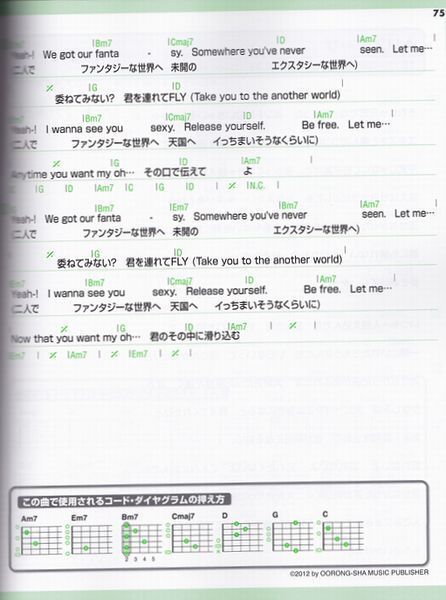 75
Bm7 Cmaj7 D Am7
Yeah-! We got our fanta - sy. Somewhere you've never seen. Let me…
(二人で ファンタジーな世界へ 未開の エクスタシーな世界へ)
G D
委ねてみない? 君を連れてFLY (Take you to the another world)
Bm7 Cmaj7 D Am7
Yeah-! I wanna see you sexy. Release yourself. Be free. Let me…
(二人で ファンタジーな世界へ 天国へ イっちまいそうなくらいに)
G D Am7
Anytime you want my oh… その口で伝えて よ
G D Am7 C G D N.C.
Bm7 Em7 Bm7 Am7
Yeah-! We got our fanta - sy. Somewhere you've never seen. Let me…
(二人で ファンタジーな世界へ 未開の エクスタシーな世界へ)
G D
委ねてみない? 君を連れてFLY (Take you to the another world)
Bm7 Cmaj7 D Am7
Yeah-! I wanna see you sexy. Release yourself. Be free. Let me…
(二人で ファンタジーな世界へ 天国へ イっちまいそうなくらいに)
G D Am7
Now that you want my oh… 君のその中に滑り込む
Em7 Am7 Em7
この曲で使用されるコード・ダイヤグラムの押え方
Am7 Em7 Bm7 Cmaj7 D G C
2 3 4 5
©2012 by OORONG-SHA MUSIC PUBLISHER